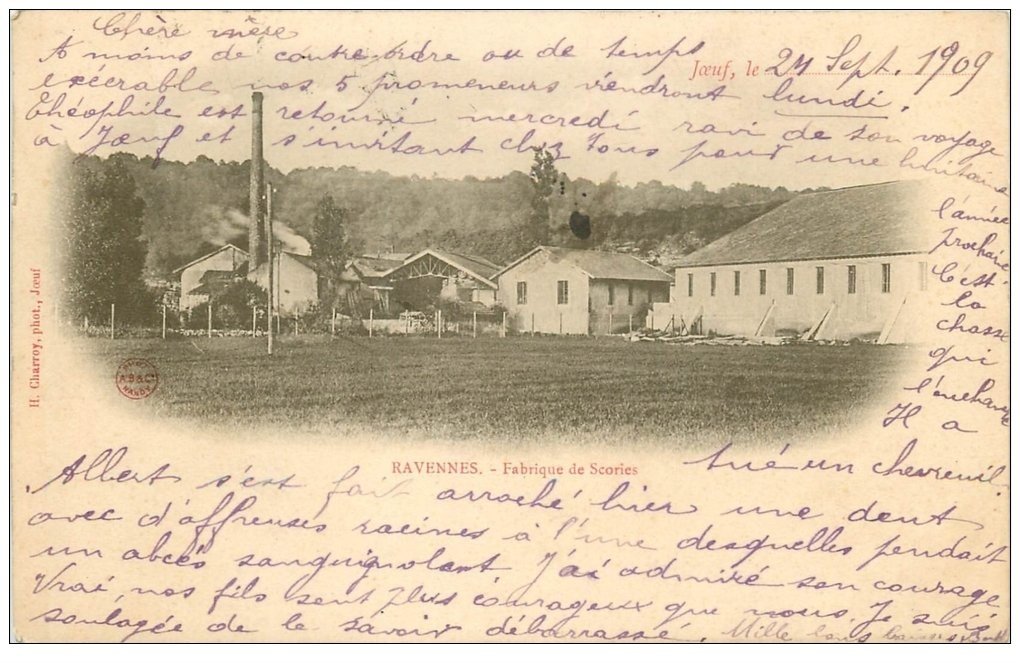 Chère mère
Jœuf, le 24 Sept. 1909
A moins de contre ordre ou de temps
exécrable nos 5 promeneurs viendront lundi.
Théophile est retourné mercredi ravi de son voyage
à Jœuf et s'invitant chez vous pour une huitaine
l'année
prochaine
C'est
la
chasse
qui
l'enchante
Il a
tué un chevreuil.
H. Charroy, phot., Jœuf
A.B & Cie
NANCY
RAVENNES. - Fabrique de Scories
Albert s'est fait arraché hier une dent
avec d'affreuses racines à l'une desquelles pendait
un abcès sanguignolent. J'ai admiré son courage
Vrai, nos fils sont plus courageux que nous. Je suis
soulagée de le savoir débarrassé. Mille bons baisers